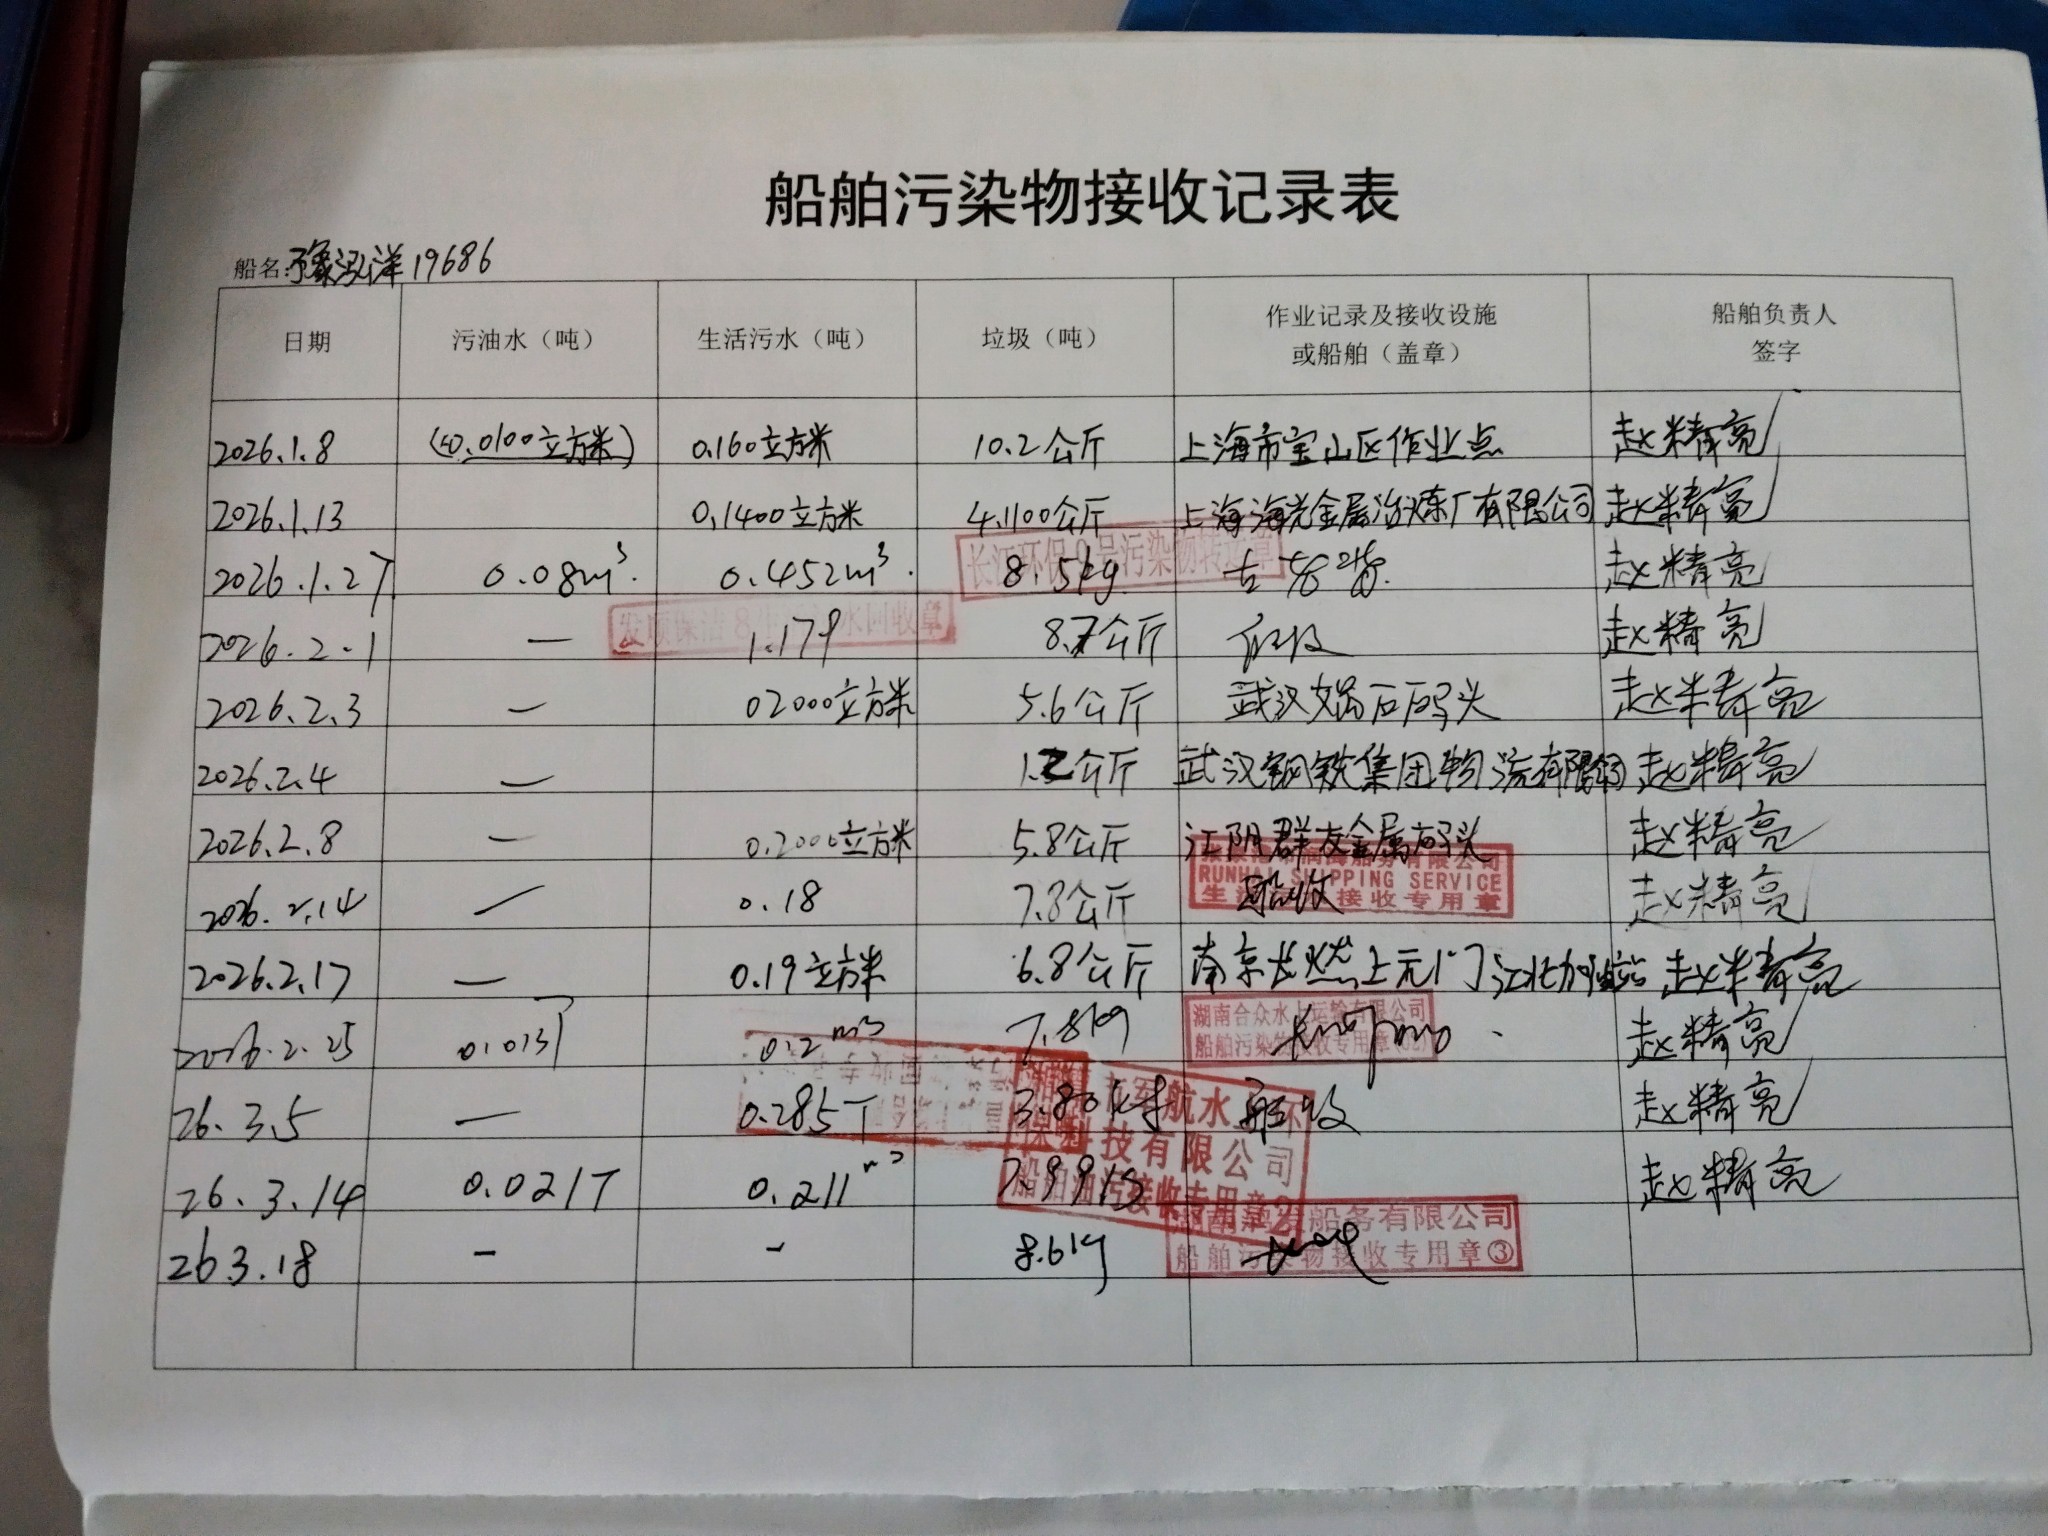 船舶污染物接收记录表
船名:豫泓洋19686
日期 污油水（吨） 生活污水（吨） 垃圾（吨） 作业记录及接收设施或船舶（盖章） 船舶负责人签字
2026.1.8 0.0100立方米 0.160立方米 10.2公斤 上海市宝山区作业点 赵精亮
2026.1.13 0.1400立方米 4.1100公斤 上海海光金属冶炼厂有限公司 赵精亮
长江环保 号污染物转运章
2026.1.27 0.08m³. 0.452m³. 8.5kg 赵精亮
保洁8 水回收章
2026.2.1 — 1.179 8.7公斤 赵精亮
2026.2.3 — 02000立方米 5.6公斤 武汉娲石码头 赵精亮
2026.2.4 — 1.2公斤 武汉钢铁集团物流有限公司 赵精亮
2026.2.8 — 0.2000立方米 5.8公斤 江阴群友金属码头 赵精亮
船务有限公司
RUNHAI SHIPPING SERVICE
生 接收专用章
2026.2.14 — 0.18 7.8公斤 船收 赵精亮
2026.2.17 — 0.19立方米 6.8公斤 南京长燃上元门江北加油站 赵精亮
湖南合众水上运输有限公司
船舶污染物接收专用章
2026.2.25 0.013T 0.2m³ 7.8kg 赵精亮
26.3.5 — 0.285T 3.80 船收 赵精亮
航水 环
保科技有限公司
船舶油污接收专用章2
26.3.14 0.021T 0.211m³ 7.99kg 赵精亮
船务有限公司
船舶污染物接收专用章③
263.18 - - 8.6kg